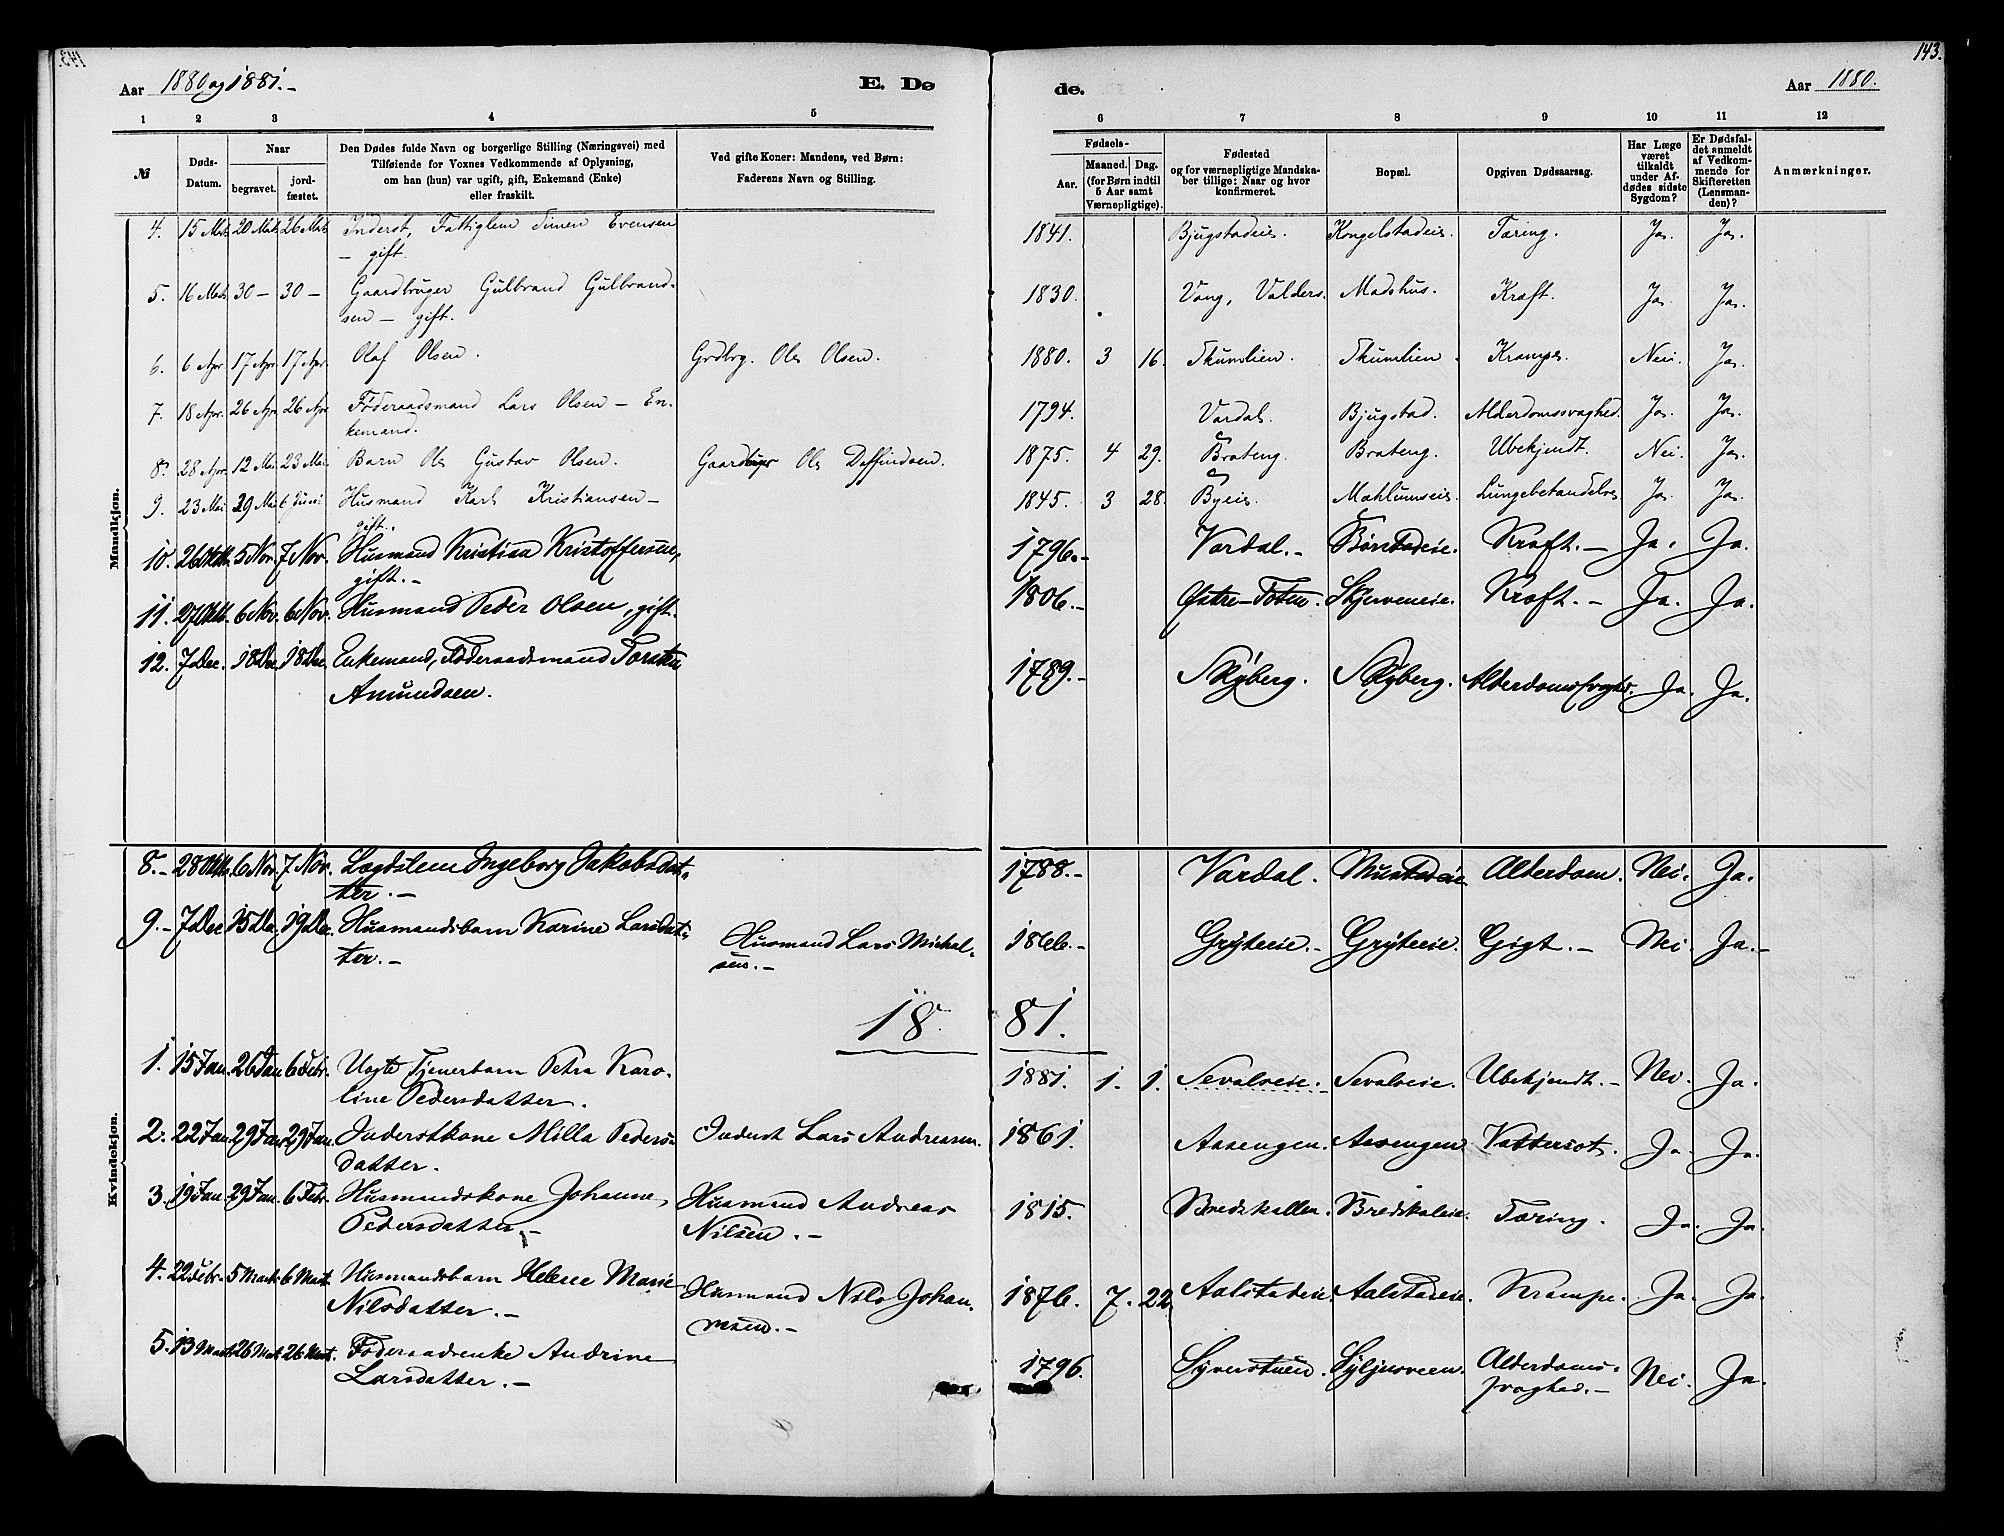 143.
Aar 1880 og 1881.-
E. Dø
de.
Aar 1880.
1 2 3 4 5 6 7 8 9 10 11 12
№
Døds-Datum.
Naar
begravet.
jordfæstet.
Den Dødes fulde Navn og borgerlige Stilling (Næringsvei) med
Tilføiende for Voxnes Vedkommende af Oplysning,
om han (hun) var ugift, gift, Enkemand (Enke)
eller fraskilt.
Ved gifte Koner: Mandens, ved Børn:
Faderens Navn og Stilling.
Fødsels-
Aar.
Maaned. Dag.
(for Børn indtil
5 Aar samt
Værnepligtige).
Fødested
og for værnepligtige Mandskaber tillige: Naar og hvor
konfirmeret.
Bopæl.
Opgiven Dødsaarsag.
Har Læge
været
tilkaldt
under Afdødes sidste
Sygdom?
Er Dødsfaldet anmeldt
af Vedkommende for
Skifteretten
(Lensmanden)?
Anmærkninger.
Mandkjøn.
4. 15 Mar. 20 Mar. 26 Mar. Inderst, Fattiglem Simen Evensen 1841. Bjugstadeie. Kongelstadeie. Tæring. Ja. Ja.
— gift.
5. 16 Marts 30 — 30 — Gaardbruger Gulbrand Gulbrand- 1830. Vang, Valders. Madshus. Kræft. Ja. Ja.
sen — gift.
6. 6 Apr. 17 Apr. 17 Apr. Olaf Olsen. Grdbrg. Ole Olsen. 1880. 3 16. Skumlien. Skumlien. Krampe. Nei. Ja.
7. 18 Apr. 26 Apr. 26 Apr. Føderaadsmand Lars Olsen — En- 1794. Vardal. Bjugstad. Alderdomssvaghed. Ja. Ja.
kemand.
8. 28 Apr. 12 Mai 23 Mai. Barn Ole Gustav Olsen. Gaardbruger Ole 1875. 4 29. Brateng. Brateng. Ubekjendt. Nei. Ja.
9. 23 Mai. 29 Mai 6 Juni Husmand Karl Kristiansen — 1845. 3 28. Byeie. Mæhlumseie. Lungebetændelse Ja. Ja.
gift.
10. 26 Oktb. 5 Nov. 7 Nov. Husmand Kristian Kristoffersen, 1796.- Vardal.- Kræft.- Ja. Ja.
gift.-
11. 27 Oktb. 6 Nov. 6 Nov. Husmand Peder Olsen, gift. 1806.- Østre-Toten. Skjerveneie. Kræft.- Ja. Ja.
12. 7 Dec. 18 Dec. 18 Dec. Enkemand, Føderaadsmand Torsten 1789.- Skyberg. Skyberg. Alderdomssvaghed. Ja. Ja.
Amundsen.
Kvindekjøn.
8.- 28 Oktb. 6 Nov. 7 Nov. Lægdslem Ingeborg Jakobsdat- 1788.- Vardal. Mustadeie Alderdom. Nei. Ja.
ter.-
9.- 7 Dec 15 Dec. 19 Dec. Husmandsbarn Karine Larsdat- Husmand Lars Michel- 1866- Gryteeie.- Gryteeie. Gigt.- Nei Ja.-
ter.- sen.-
18 81.
1. 15 Jan. 26 Jan 6 Febr. Uægte Tjenerbarn Petra Karo- 1881. 1. 1. Sevaleeie. Sevaleeie. Ubekjendt.- Nei. Ja.
line Pedersdatter.
2. 22 Jan. 29 Jan 29 Jan. Inderstkone Milla Peders- Inderst Lars Andreasen. 1861. Aasengen. Aasengen. Vattersot. Ja. Ja.
datter.
3. 19 Jan. 29 Jan. 6 Febr. Husmandskone Johanne Husmand Andreas 1815. Bredskallen. Bredskaleie. Tæring. Ja. Ja.
Pedersdatter.- Nilsen.-
4. 22 Febr. 5 Mart. 6 Mart. Husmandsbarn Helene Marie Husmand Nils Johan- 1876. 7. 22. Aalstadeie. Aalstadeie. Krampe. Ja. Ja.
Nilsdatter.- nesen.-
5. 13 Mart. 26 Mart. 26 Mart. Føderaadsenke Andrine 1796. Syverstuen. Syljusveen. Alderdoms- Nei. Ja.
Larsdatter.- svaghed.-